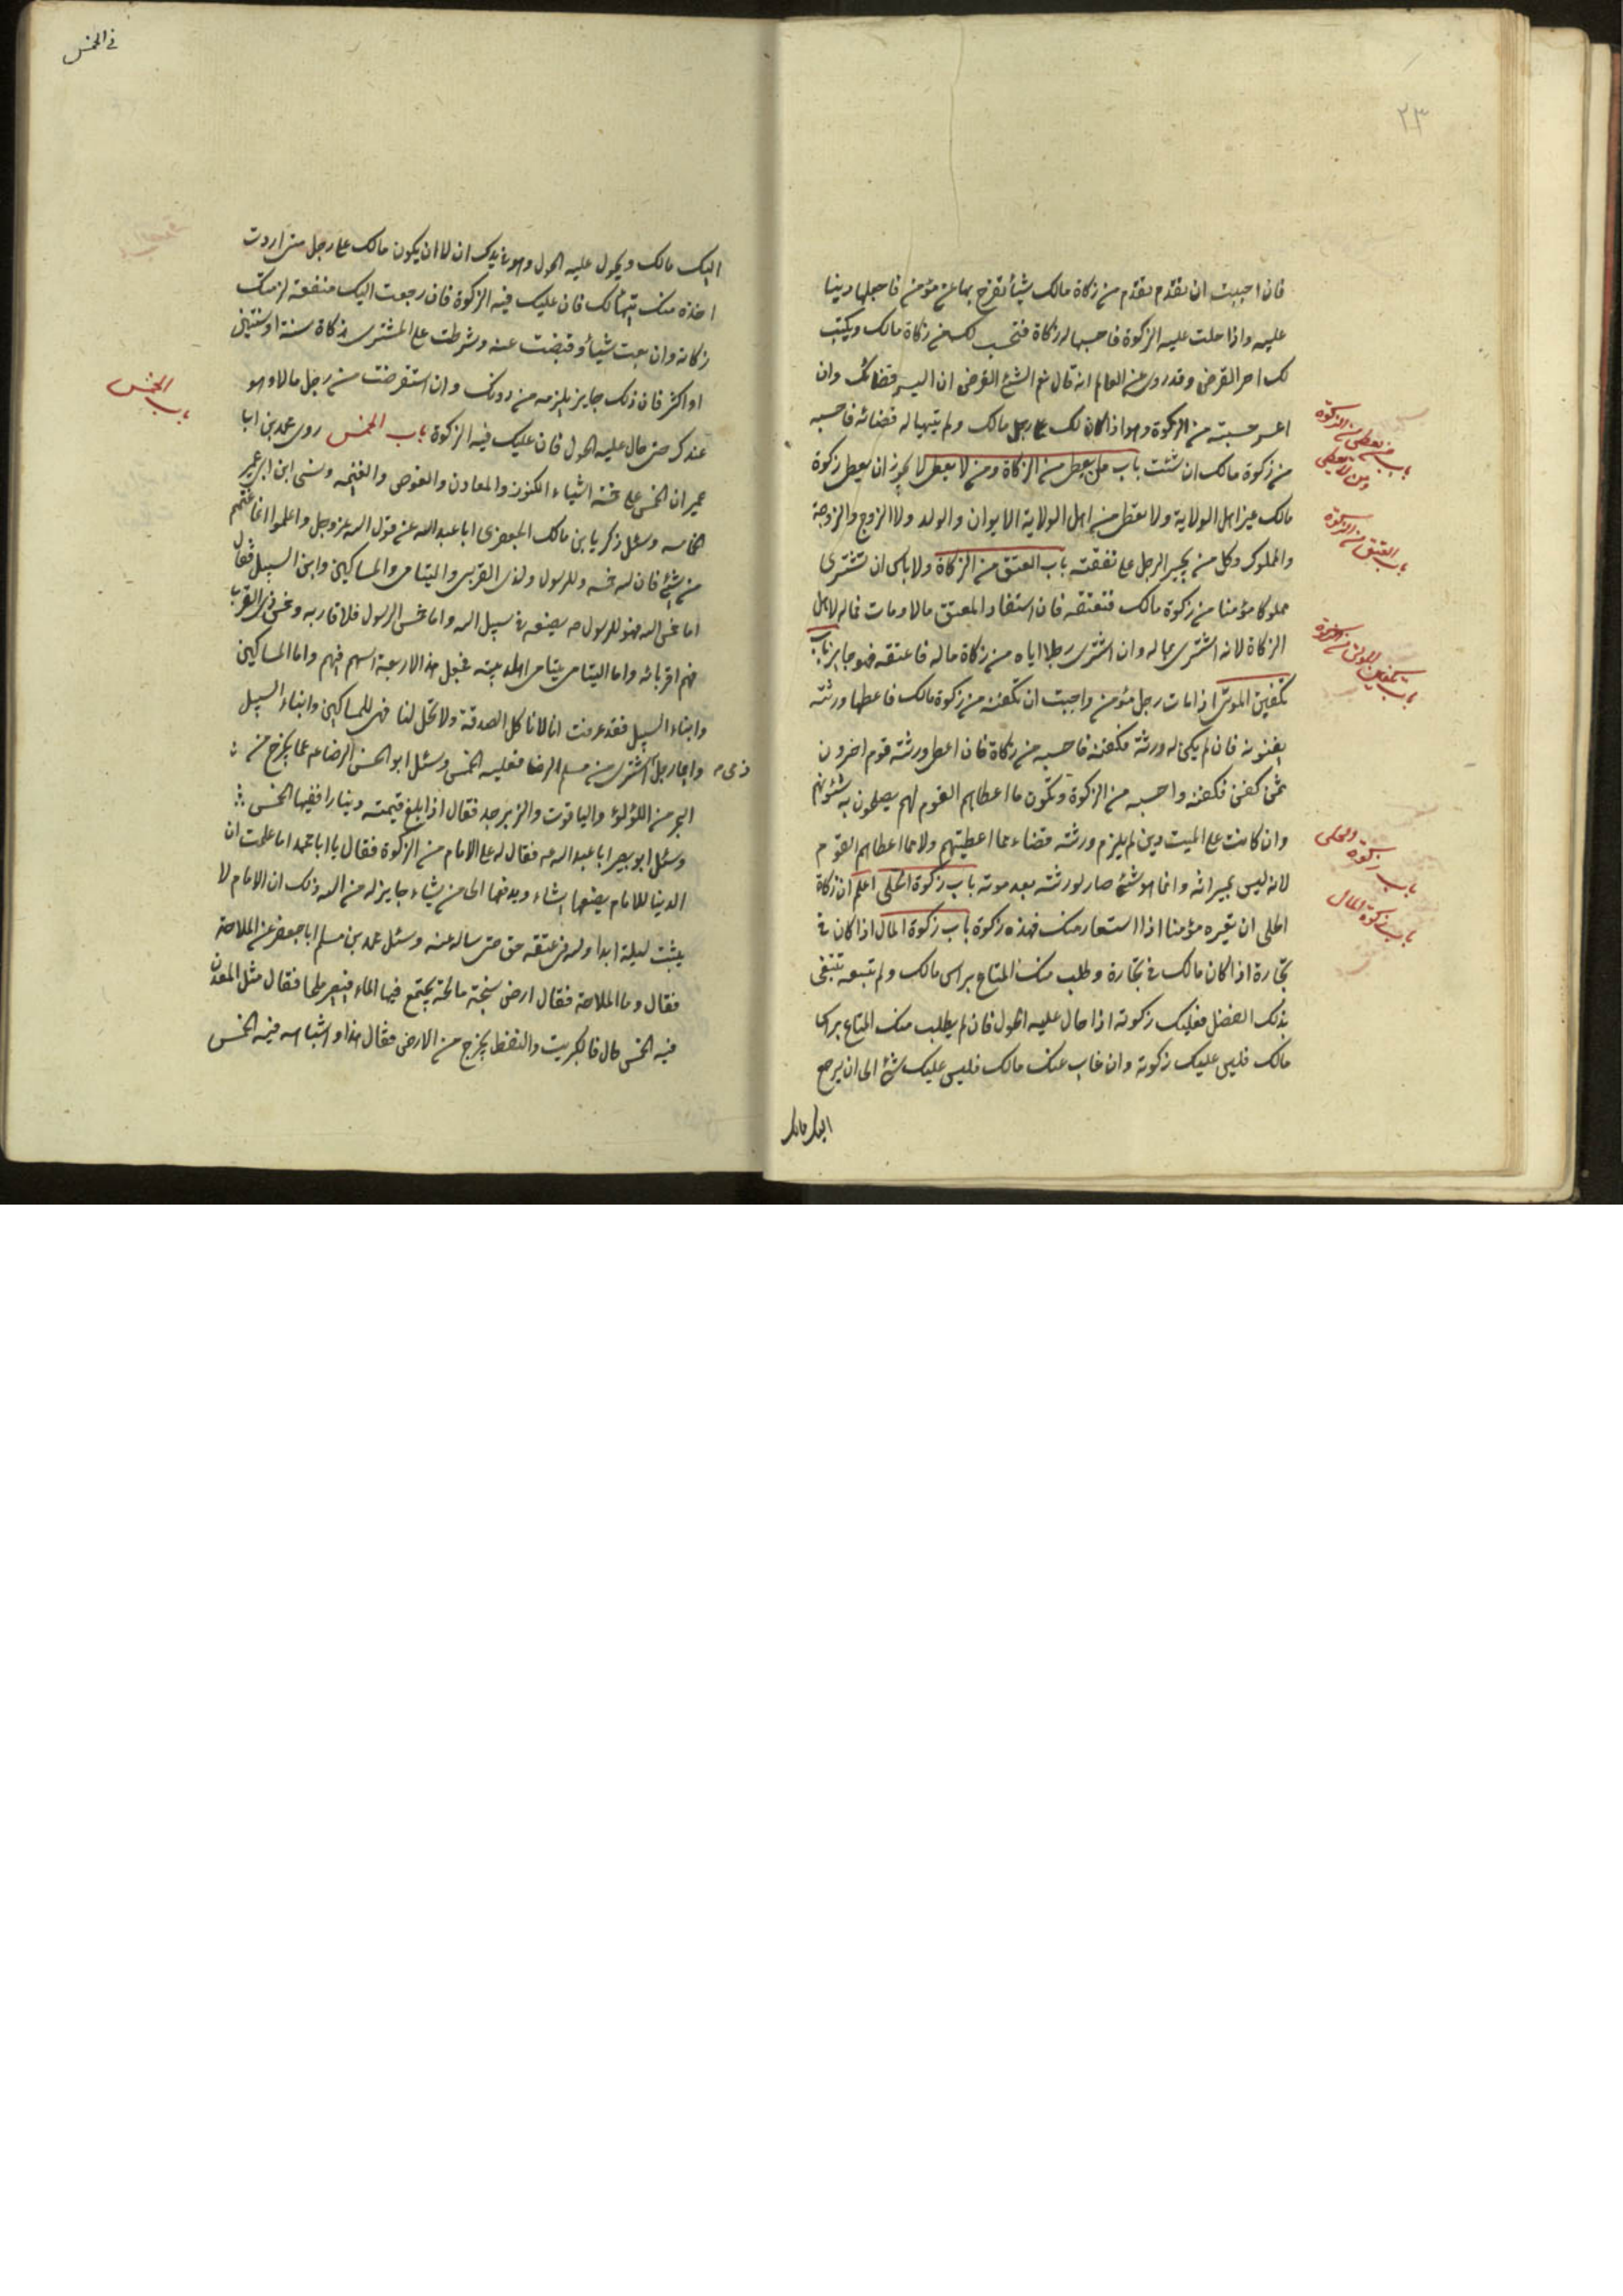 ٢٣
فان احببت ان تقدم من زكاة مالك شيئا تفرج بها عن مؤمن فاجعلها دينا
عليه واذا حلت عليه الزكوة فاحسبها له زكاة فتحسب لك من زكاة مالك ويكتب
لك اجر القرض وقد روى عن العالم انه قال نعم الشئ القرض ان ايسر قضاك وان
اعسر حسبته من الزكوة وهو اذا كان لك على رجل مالك ولم يتهيا له قضائه فاحسبه
من زكوة مالك ان شئت باب من يعطى من الزكاة ومن لا يعطى لا يجوز ان يعطى زكوة
مالك غير اهل الولاية ولا تعطى من اهل الولاية الابوان والولد ولا الزوج والزوجة
والمملوك وكل من يجبر الرجل على نفقته باب العتق من الزكاة ولا باس ان تشترى
مملوكا مؤمنا من زكوة مالك فتعتقه فان استفاد المعتق مالا ومات فماله لاهل
الزكاة لانه اشترى بماله وان اشترى رجل اباه من زكاة ماله فاعتقه فهو جايز باب
تكفين الموتى اذا مات رجل مؤمن واحببت ان تكفنه من زكوة مالك فاعطها ورثته
يكفنونه فان لم يكن له ورثة فكفنه فاحسبه من زكاة فان اعطى ورثته قوم اخرون
ثمن كفن فكفنه واحسبه من الزكوة وتكون ما اعطاهم القوم لهم يصلحون به شئونهم
وان كانت على الميت دين لم يلزم ورثته قضاءه مما اعطيتهم ولا مما اعطاهم القوم
لانه ليس بميراثه وانما هو شئ صار لورثته بعد موته باب زكوة الحلى اعلم ان زكاة
الحلى ان تعيره مؤمنا اذا استعار منك فهذه زكوة باب زكوة المال اذا كان فى
تجارة اذا كان مالك فى تجارة وطلب منك المتاع براس مالك ولم تبعه تبتغى
بذلك الفضل فعليك زكوته اذا حال عليه الحول فان لم يطلب منك المتاع براس
مالك فليس عليك زكوته وان غاب عنك مالك فليس عليك شئ الى ان يرجع
اليك مالك
باب من يعطى من الزكوة
ومن لا يعطى
باب العتق من الزكوة
باب تكفين الموتى من الزكوة
باب زكوة الحلى
باب زكوة المال
فى الخمس
اليك مالك ويحول عليه الحول وهو فى يدك ان لا ان يكون مالك على رجل متى اردت
اخذه منك تهيا لك فان عليك فيه الزكوة فان رجعت اليك منفعته لزمتك
زكاته وان بعت شيئا وقبضت عنه وشرطت على المشترى زكاة سنة او سنتين
او اكثر فان ذلك جايز يلزمه من دونك وان استقرضت من رجل مالا وهو
عندك حتى حال عليه الحول فان عليك فيه الزكوة باب الخمس روى محمد بن ابا
عمير ان الخمس على خمسة اشياء الكنوز والمعادن والغوص والغنيمه ونسى ابن ابى عمير
الخامسه وسئل زكريا بن مالك الجعفرى ابا عبد الله عن قول الله عز وجل واعلموا انما غنمتم
من شئ فان لله خمسه وللرسول ولذى القربى واليتامى والمساكين وابن السبيل فقال
اما خمس الله فهو للرسول ص يضعه فى سبيل الله واما خمس الرسول فلاقاربه وخمس ذى القربا
فهم اقربائه واما اليتامى يتامى اهل بيته فجعل هذا الاربعة اسهم فيهم واما المساكين
وابناء السبيل فقد عرفت انا لا ناكل الصدقة ولا تحل لنا فهى للمساكين وابناء السبيل
وايما رجل ذمى اشترى من مسلم ارضا فعليه الخمس وسئل ابو الحسن الرضا ع عما يخرج من
البحر من اللؤلؤ والياقوت والزبرجد فقال اذا بلغ قيمته دينارا ففيها الخمس
وسئل ابو بصير ابا عبد الله ع فقال له على الامام من الزكوة فقال يا ابا محمد اما علمت ان
الدنيا للامام يضعها يشاء ويدفعها الى من يشاء جايز له من الله ذلك ان الامام لا
يبيت ليلة ابدا ولله فى عنقه حق حتى ساله عنه وسئل محمد بن مسلم ابا جعفر عن الملاحة
فقال وما الملاحة فقال ارض سبخة مالحة يجتمع فيها الماء فيصير ملحا فقال مثل المعدن
فيه الخمس قال فالكبريت والنفط يخرج من الارض فقال هذا واشباهه فيه الخمس
باب الخمس